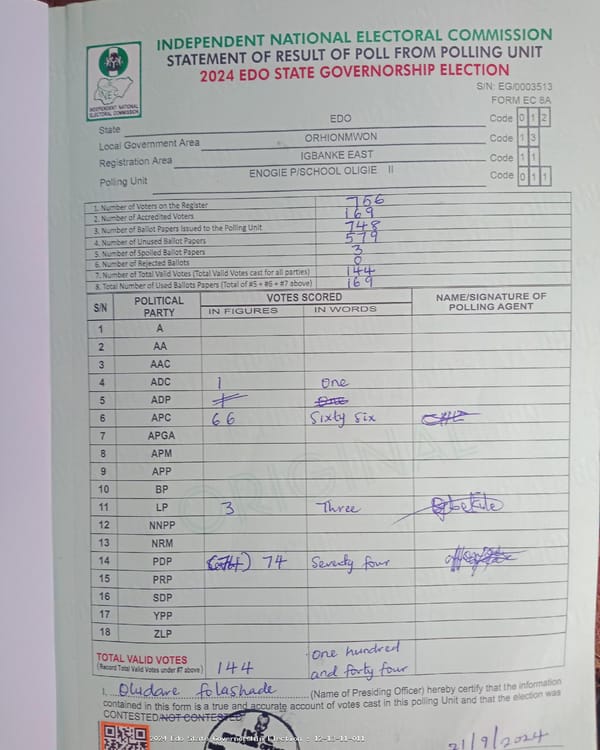 INDEPENDENT NATIONAL ELECTORAL COMMISSION
STATEMENT OF RESULT OF POLL FROM POLLING UNIT
2024 EDO STATE GOVERNORSHIP ELECTION
INEC
INDEPENDENT NATIONAL
ELECTORAL COMMISSION
S/N: EG/0003513
FORM EC 8A
State EDO Code 0 1 2
Local Government Area ORHIONMWON Code 1 3
Registration Area IGBANKE EAST Code 1 1
Polling Unit ENOGIE P/SCHOOL OLIGIE II Code 0 1 1
1. Number of Voters on the Register 756
2. Number of Accredited Voters 169
3. Number of Ballot Papers Issued to the Polling Unit 748
4. Number of Unused Ballot Papers 579
5. Number of Spoiled Ballot Papers 3
6. Number of Rejected Ballots 0
7. Number of Total Valid Votes (Total Valid Votes cast for all parties) 144
8. Total Number of Used Ballots Papers (Total of #5 + #6 + #7 above) 169
S/N POLITICAL PARTY VOTES SCORED NAME/SIGNATURE OF POLLING AGENT
IN FIGURES IN WORDS
1 A
2 AA
3 AAC
4 ADC 1 One
5 ADP 1 One
6 APC 66 Sixty six
7 APGA
8 APM
9 APP
10 BP
11 LP 3 Three
12 NNPP
13 NRM
14 PDP 74 Seventy four
15 PRP
16 SDP
17 YPP
18 ZLP
ORIGINAL
TOTAL VALID VOTES
(Record Total Valid Votes under #7 above) 144 One hundred and forty four
I, Oludare folashade (Name of Presiding Officer) hereby certify that the information
contained in this form is a true and accurate account of votes cast in this polling Unit and that the election was
CONTESTED/NOT CONTESTED
21/9/2024
2024 Edo State Governorship Election - 12-13-11-011